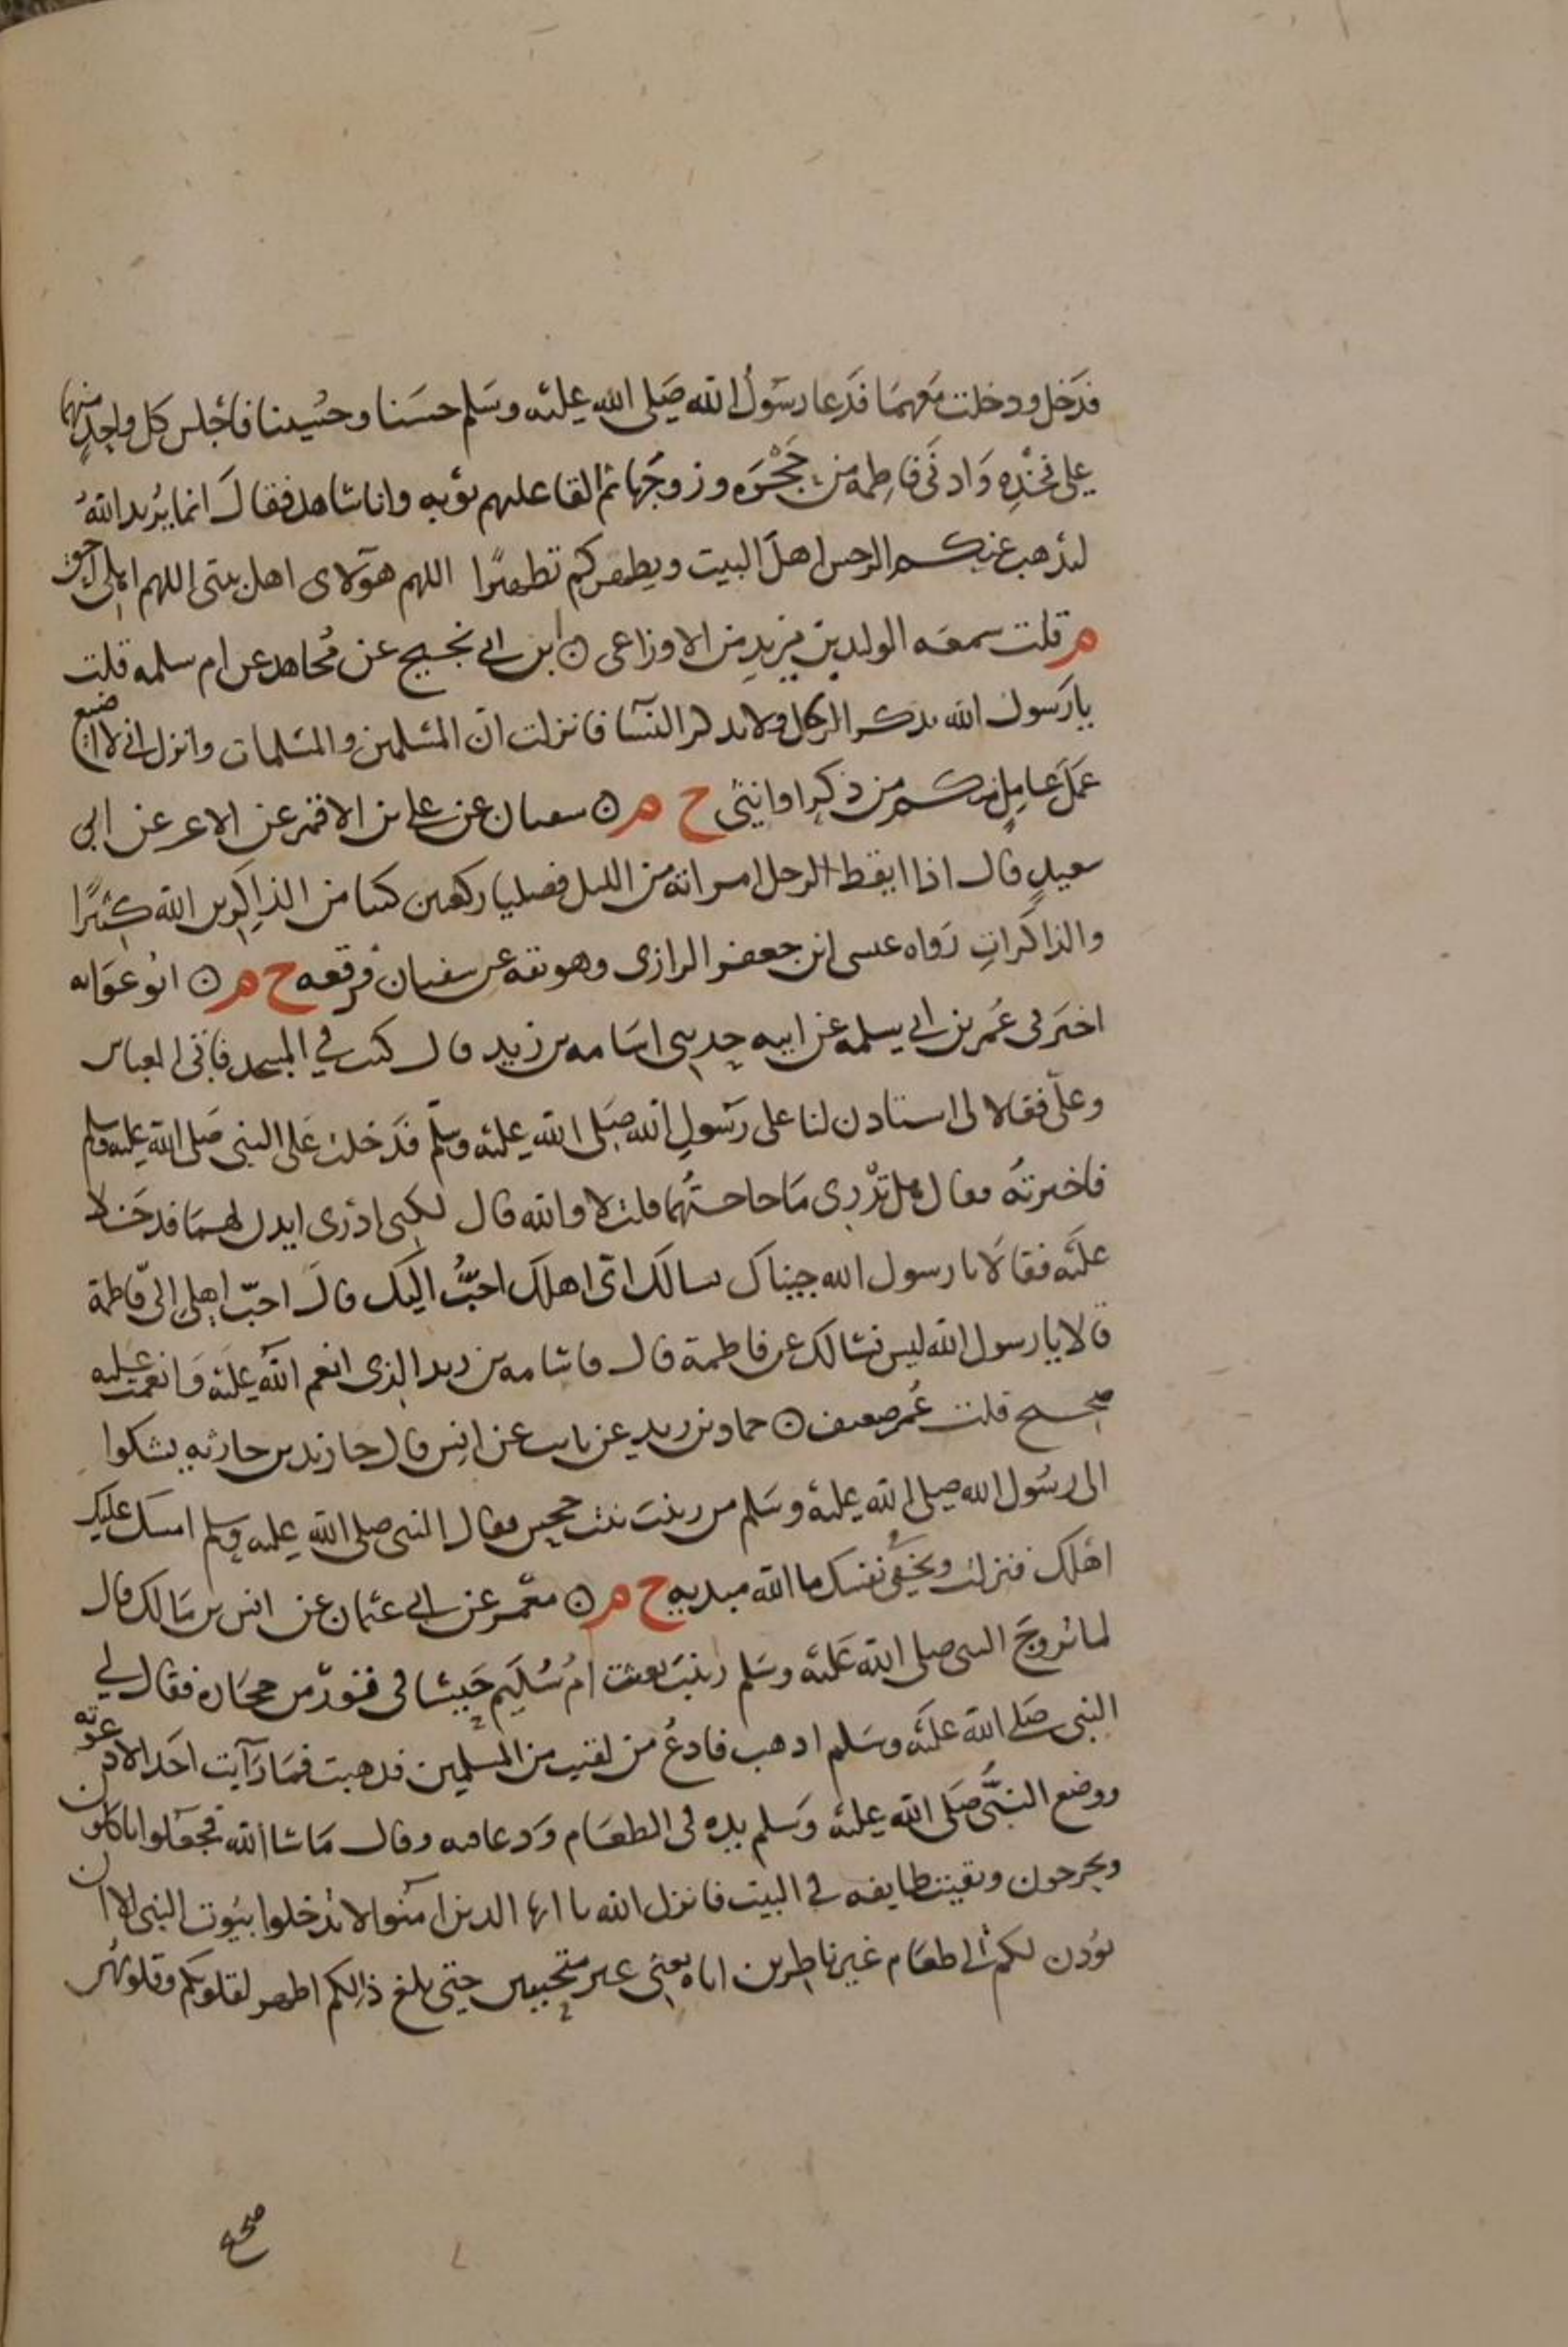 فدخل ودخلت معهما فدعا رسول الله صلى الله عليه وسلم حسنا وحسينا فاجلس كل واحد منهما
على فخذه وادنى فاطمه من حجره وزوجها ثم القا عليهم ثوبه وانا شاهد فقال انما يريد الله
ليذهب عنكم الرجس اهل البيت ويطهركم تطهيرا اللهم هولاى اهل بيتى اللهم اهلى احق
م قلت سمعه الوليد بن مزيد من الاوزاعى ۞ ابن ابي نجيح عن مجاهد عن ام سلمه قلت
يا رسول الله يذكر الرجال ولا يذكر النسا فانزلت ان المسلمين والمسلمات وانزل انى لا اضيع
عمل عامل منكم من ذكر او انثى خ م ۞ سفيان عن على بن الاقمر عن الاغر عن ابي
سعيد قال اذا ايقظ الرجل امراته من الليل فصليا ركعتين كتبا من الذاكرين الله كثيرا
والذاكرات رواه عيسى ابن جعفر الرازى وهو ثقه عن سفيان فرفعه خ م ۞ ابو عوانه
اخبرنى عمر بن ابي سلمه عن ابيه حدثنى اسامه بن زيد قال كنت في المسجد فاتى العباس
وعلى فقالا لى استاذن لنا على رسول الله صلى الله عليه وسلم فدخلت على النبى صلى الله عليه وسلم
فاخبرته فقال هل تدرى ما حاجتهما قلت لا والله قال لكنى ادرى ايذن لهما فدخلا
عليه فقالا يا رسول الله جيناك نسالك اى اهلك احب اليك قال احب اهلى الى فاطمة
قالا يا رسول الله ليس نسالك عن فاطمة قال فاسامه بن زيد الذى انعم الله عليه وانعمت عليه
صحيح قلت عمر ضعيف ۞ حماد بن زيد عن ثابت عن انس قال جا زيد بن حارثه يشكوا
الى رسول الله صلى الله عليه وسلم من زينت بنت جحش فقال النبى صلى الله عليه وسلم امسك عليك
اهلك فنزلت وتخفى نفسك ما الله مبديه خ م ۞ معمر عن ابي عثمان عن انس بن مالك قال
لما تزوج النبى صلى الله عليه وسلم زينب بعثت ام سليم حيسا فى تور من حجاره فقال لي
النبى صلى الله عليه وسلم اذهب فادع من لقيت من المسلمين فذهبت فما رايت احدا الا دعوته
ووضع النبى صلى الله عليه وسلم يده فى الطعام ودعا فيه وقال ما شا الله فجعلوا ياكلون
ويخرجون وبقيت طايفه في البيت فانزل الله يا ايها الذين امنوا لا تدخلوا بيوت النبى الا ان
يوذن لكم الى طعام غير ناظرين اناه يعنى غير متحينين حتى بلغ ذالكم اطهر لقلوبكم وقلوبهن
صحيح